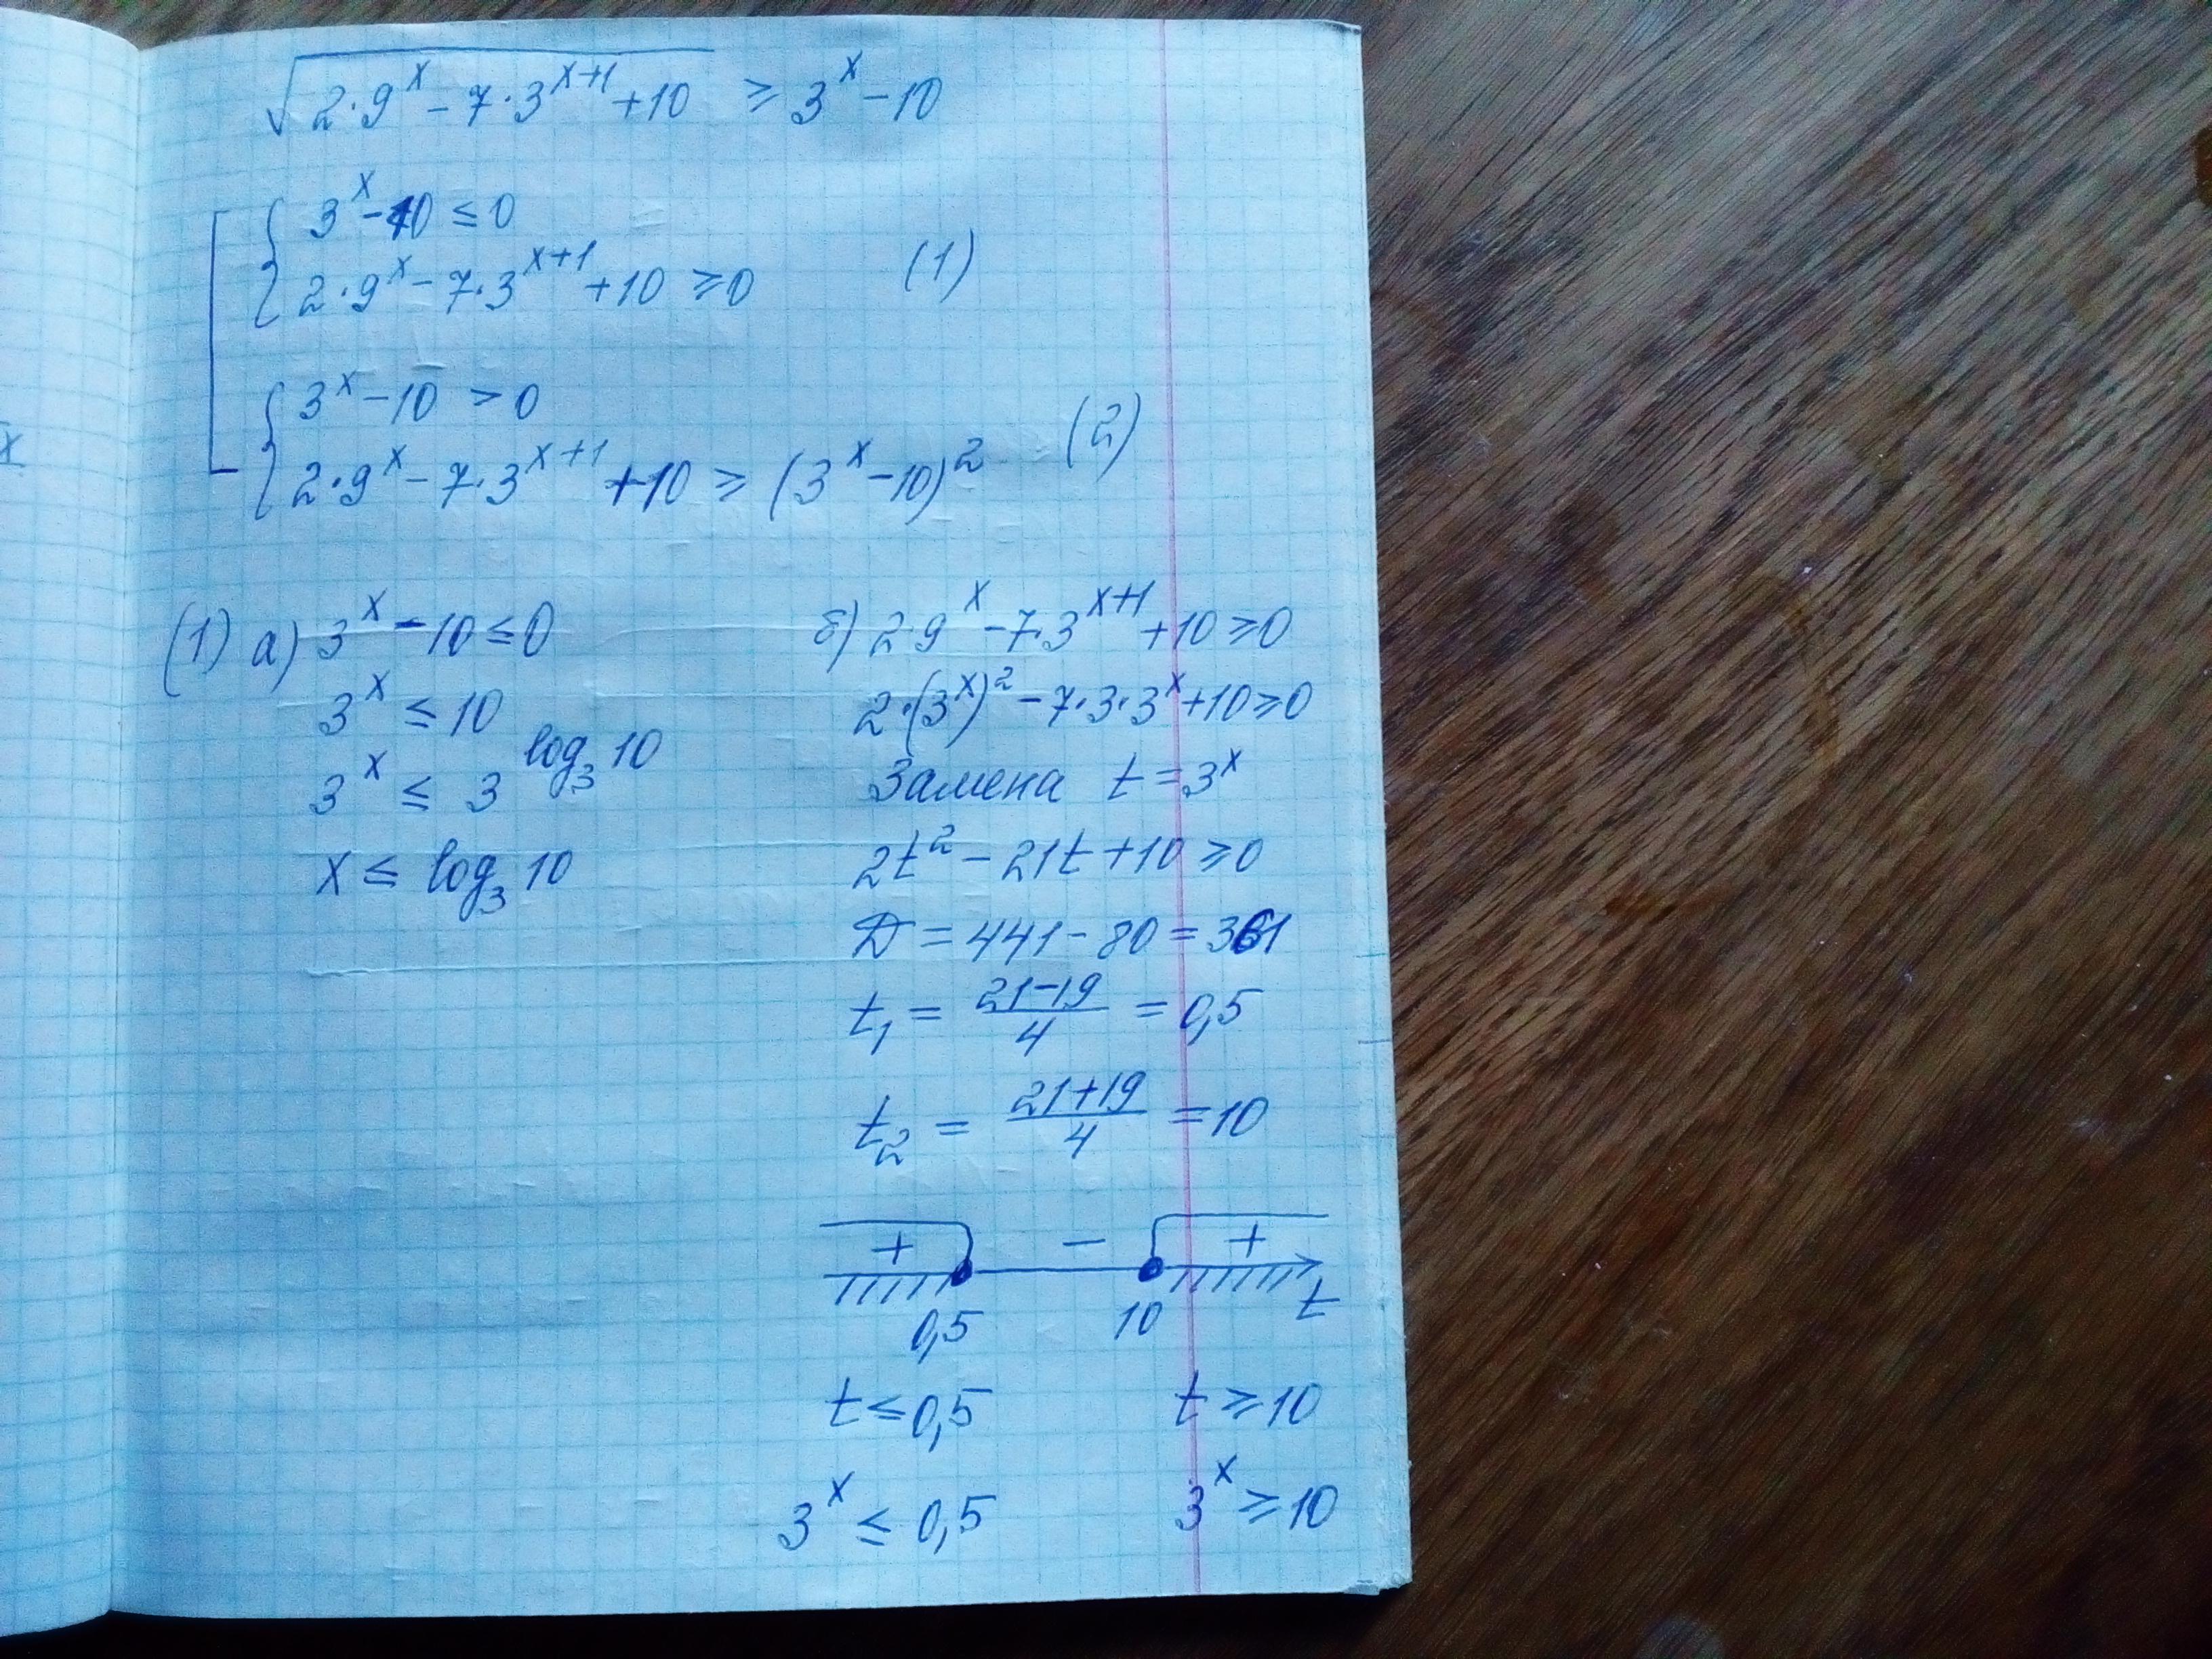 √(2·9^x − 7·3^(x+1) + 10) ≥ 3^x − 10
3^x − 10 ≤ 0
2·9^x − 7·3^(x+1) + 10 ≥ 0 (1)
3^x − 10 > 0
2·9^x − 7·3^(x+1) + 10 ≥ (3^x − 10)^2 (2)
(1) а) 3^x − 10 ≤ 0
3^x ≤ 10
3^x ≤ 3^(log_3 10)
x ≤ log_3 10
б) 2·9^x − 7·3^(x+1) + 10 ≥ 0
2·(3^x)^2 − 7·3·3^x + 10 ≥ 0
Замена t = 3^x
2t^2 − 21t + 10 ≥ 0
D = 441 − 80 = 361
t_1 = (21−19)/4 = 0,5
t_2 = (21+19)/4 = 10
+ − +
0,5 10 t
t ≤ 0,5 t ≥ 10
3^x ≤ 0,5 3^x ≥ 10
x